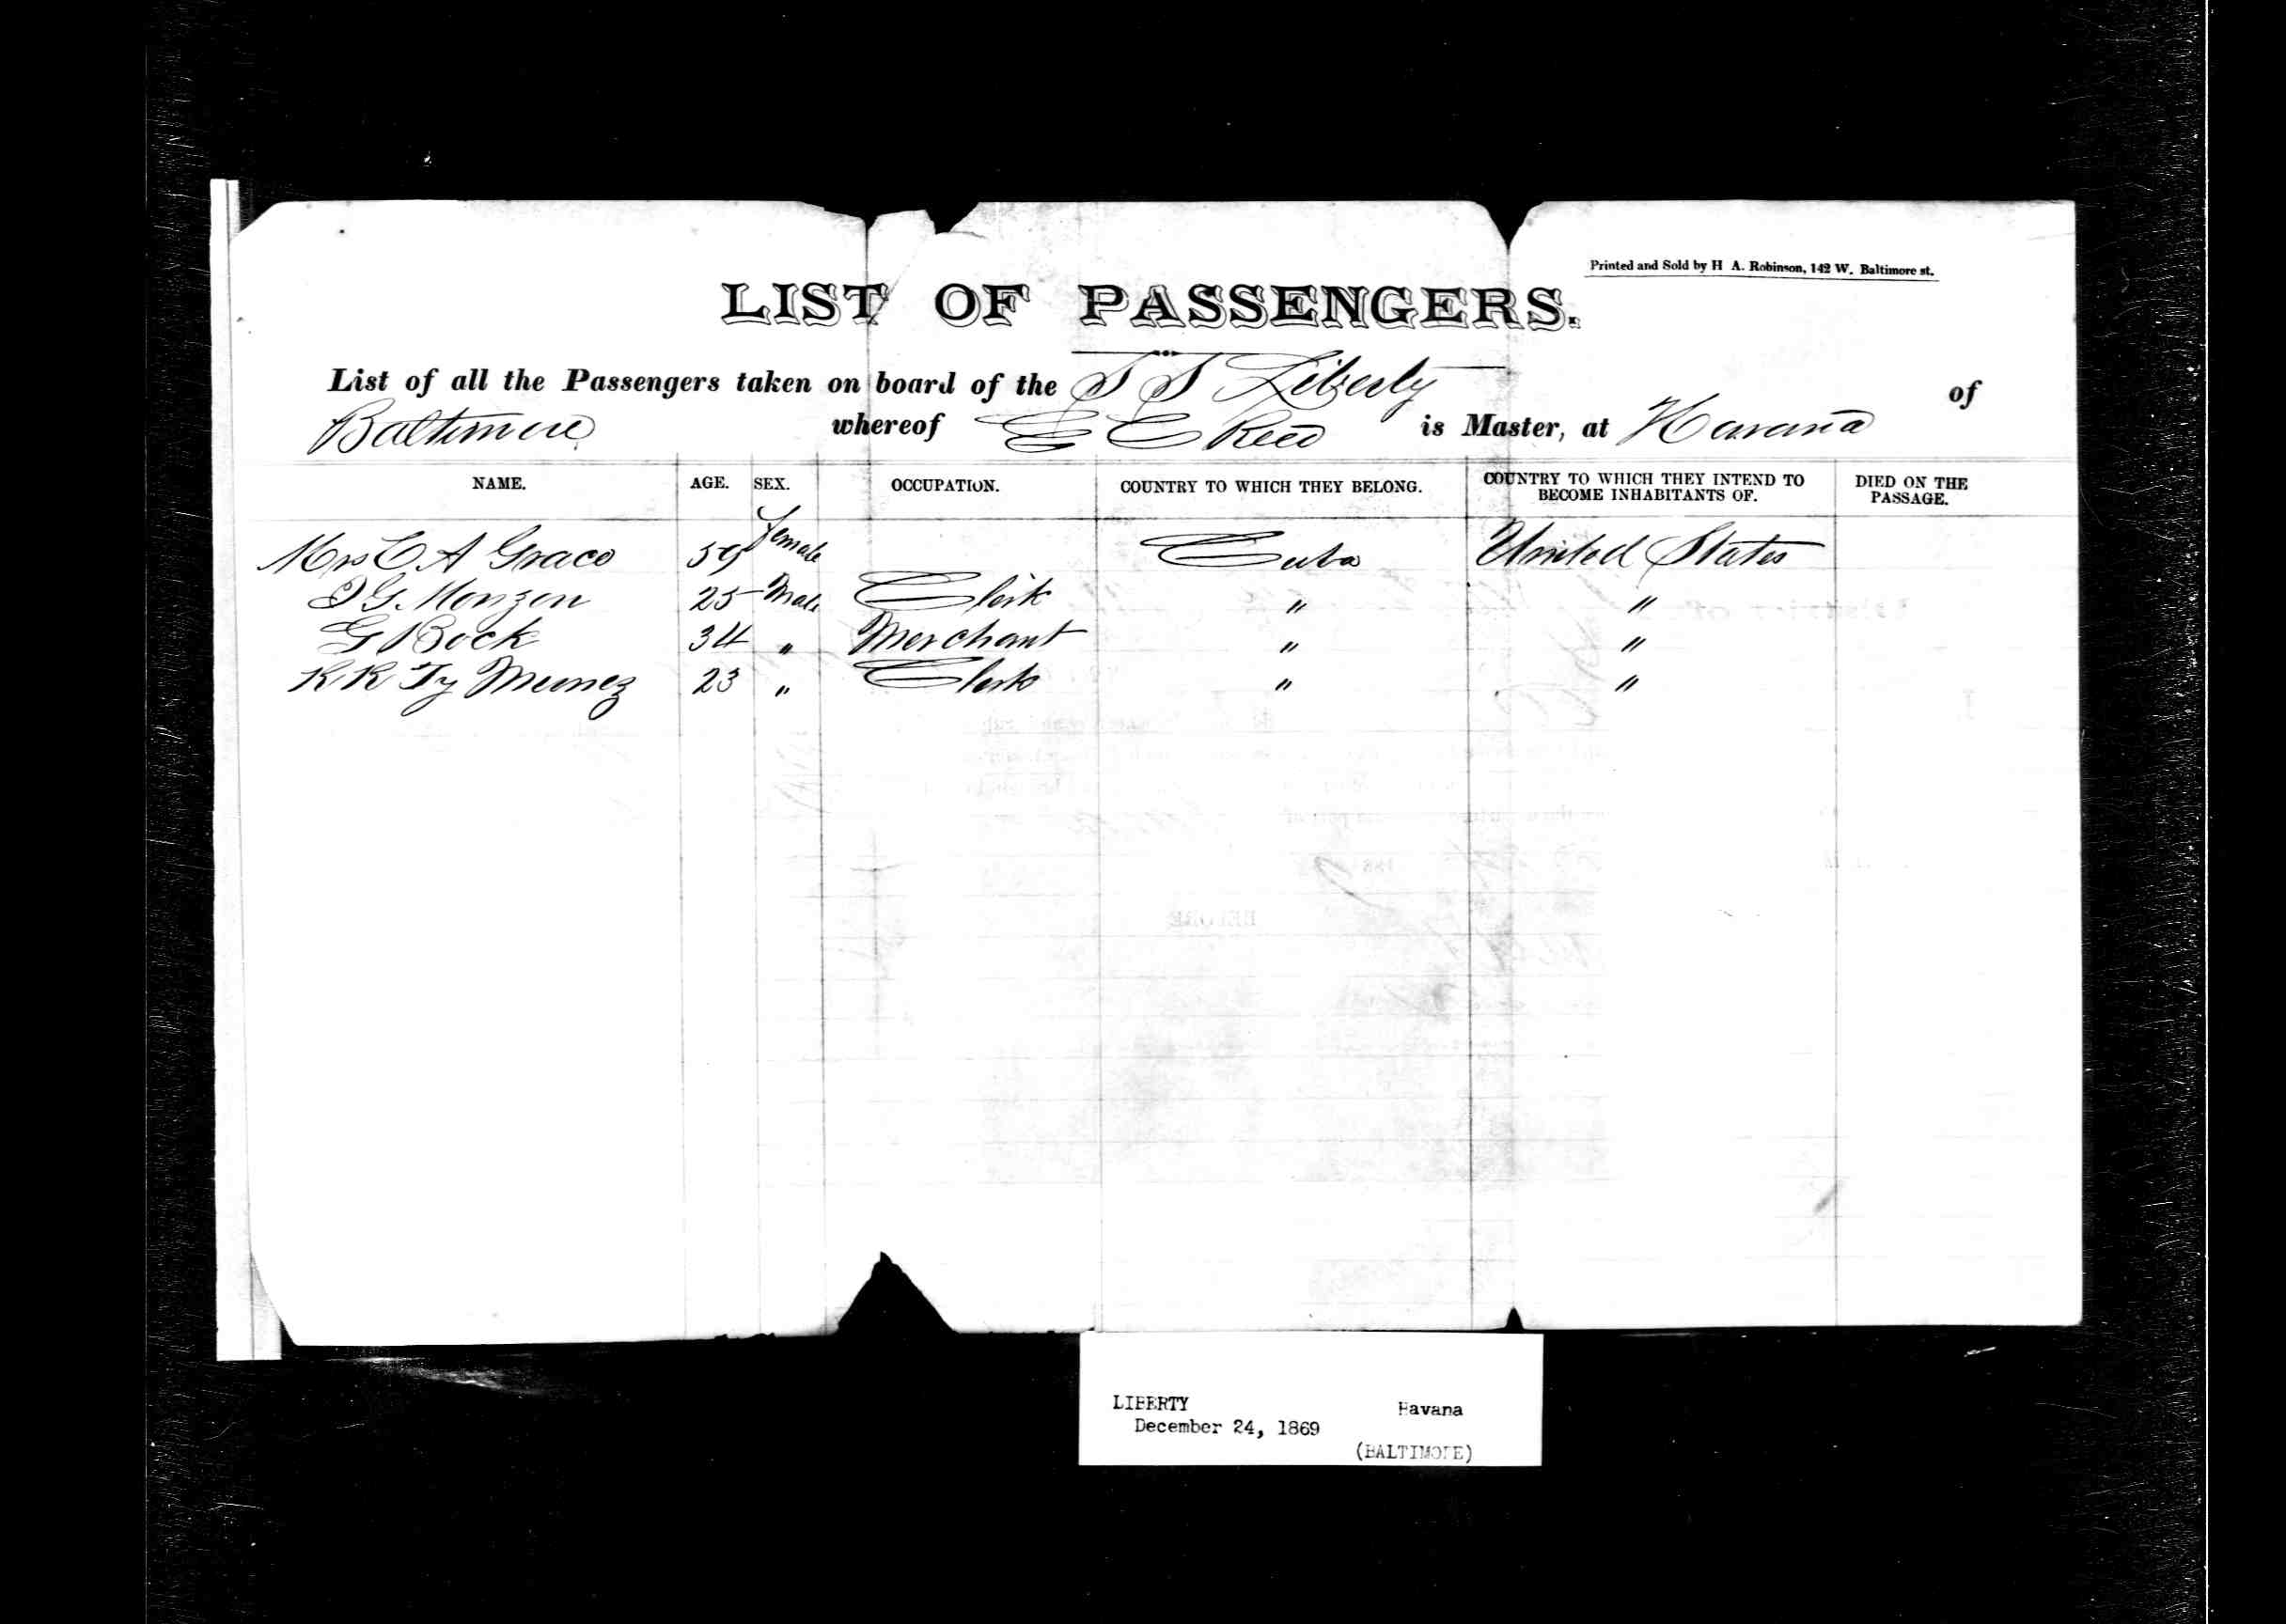 Printed and Sold by H A. Robinson, 142 W. Baltimore st.
LIST OF PASSENGERS.
List of all the Passengers taken on board of the S S Liberty of
Baltimore whereof E E Reed is Master, at Havana
NAME. AGE. SEX. OCCUPATION. COUNTRY TO WHICH THEY BELONG. COUNTRY TO WHICH THEY INTEND TO BECOME INHABITANTS OF. DIED ON THE PASSAGE.
Mrs C A Graco 59 Female Cuba United States
G Monzon 25 Male Clerk " "
G Bock 34 " Merchant " "
R R Ty 23 " Clerk " "
LIBERTY Havana
December 24, 1869
(BALTIMORE)